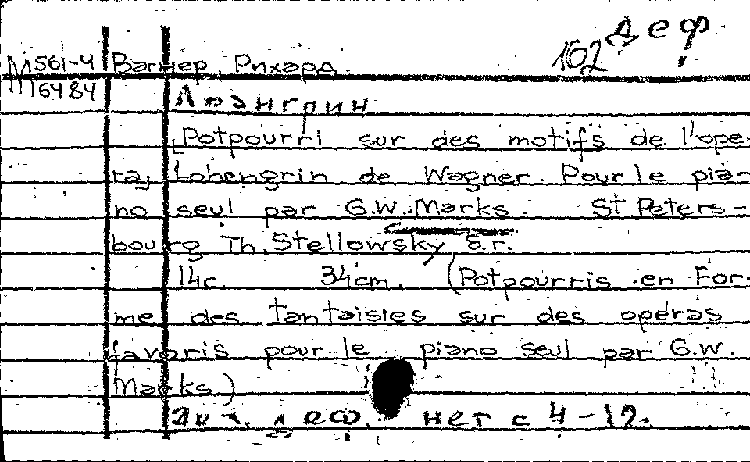 102 деф.
М561-4 Вагнер, Рихард.
М6484
Лоэнгрин
[Potpourri sur des motifs de l'ope-
ra] Lohengrin de Wagner. Pour le pia-
no seul par G.W. Marks. St Peters-
bourg Th. Stellowsky s.a.
14с. 34cm. (Potpourris en For-
me des fantaisies sur des operas
favoris pour le piano seul par G.W.
Marks.)
деф. нет с 4-12.